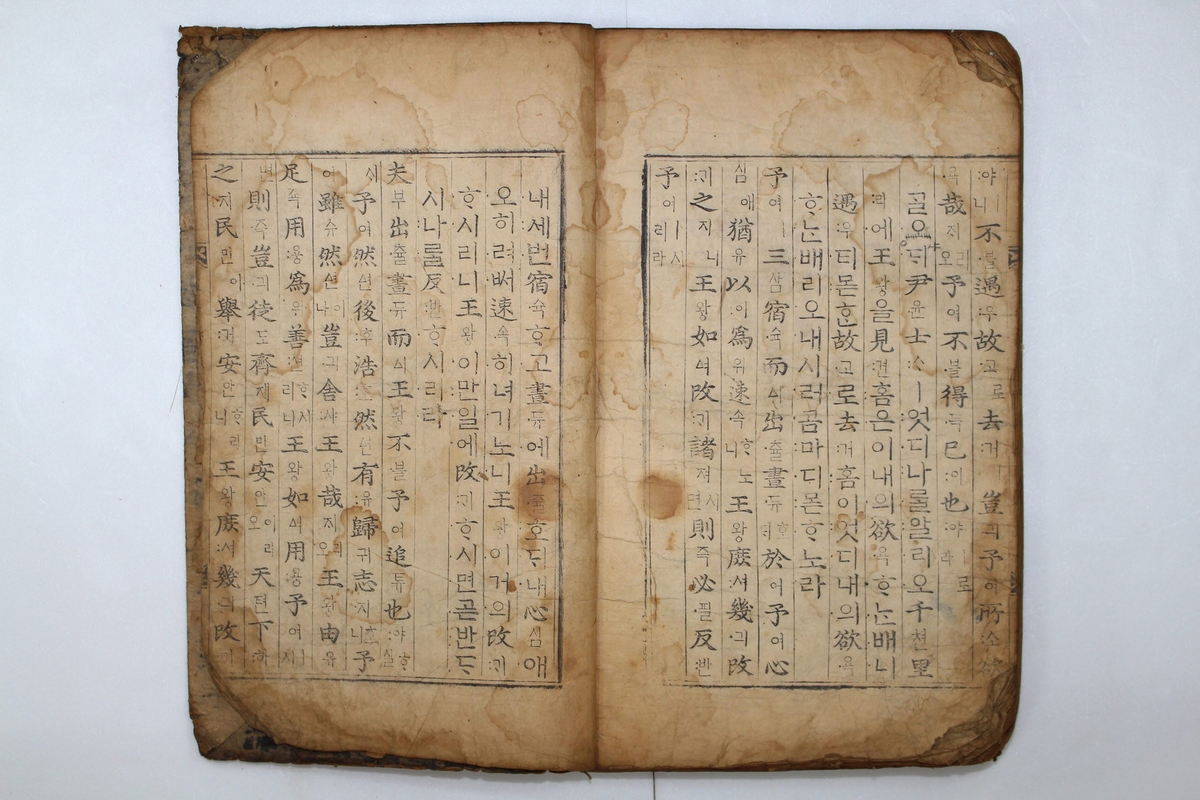 :야ㅣ니不블遇:우故고로去:거ㅣ豈:긔予여所:소欲
욕哉ᄌᆡ리오予여不블得득已:이也:야ㅣ로라
ᄀᆞᆯᄋᆞ샤ᄃᆡ尹윤士:ᄉᆞㅣ엇디나ᄅᆞᆯ알리오千쳔里
리에王왕을見:견홈은이내의欲욕ᄒᆞᄂᆞᆫ배니
遇:우티몯ᄒᆞᆫ故고로去:거홈이엇디내의欲욕
ᄒᆞᄂᆞᆫ배리오내시러곰마디몯ᄒᆞ노라
予여ㅣ三삼宿슉而이出츌晝듀호ᄃᆡ於어予여心
심애猶유以이爲위速속ᄒᆞ노니王왕庶:셔幾긔改
:ᄀᆡ之지니王왕如여改:ᄀᆡ諸져시면則즉必필反:반
予여ㅣ시리라
내세번宿슉ᄒᆞ고晝듀에出츌호ᄃᆡ내心심애
오히려ᄡᅥ速속히너기노니王왕이거의改:ᄀᆡ
ᄒᆞ시리니王왕이만일에改:ᄀᆡᄒᆞ시면곧반ᄃᆞ
시나ᄅᆞᆯ反:반ᄒᆞ시리라
夫부出츌晝듀而이王왕不블予여追튜也:야ᄒᆞ실
ᄉᆡ予여然연後:후浩:호然연有:유歸귀志지호니予
여雖슈然연이나豈:긔舍:샤王왕哉ᄌᆡ리오王왕由유
足죡用:용爲위善:션ᄒᆞ시리니王왕如여用:용予여ㅣ시
면則즉豈:긔徒도齊졔民민安안이리오天텬下:하
之지民민이擧:거安안ᄒᆞ리니王왕庶:셔幾긔改:ᄀᆡ